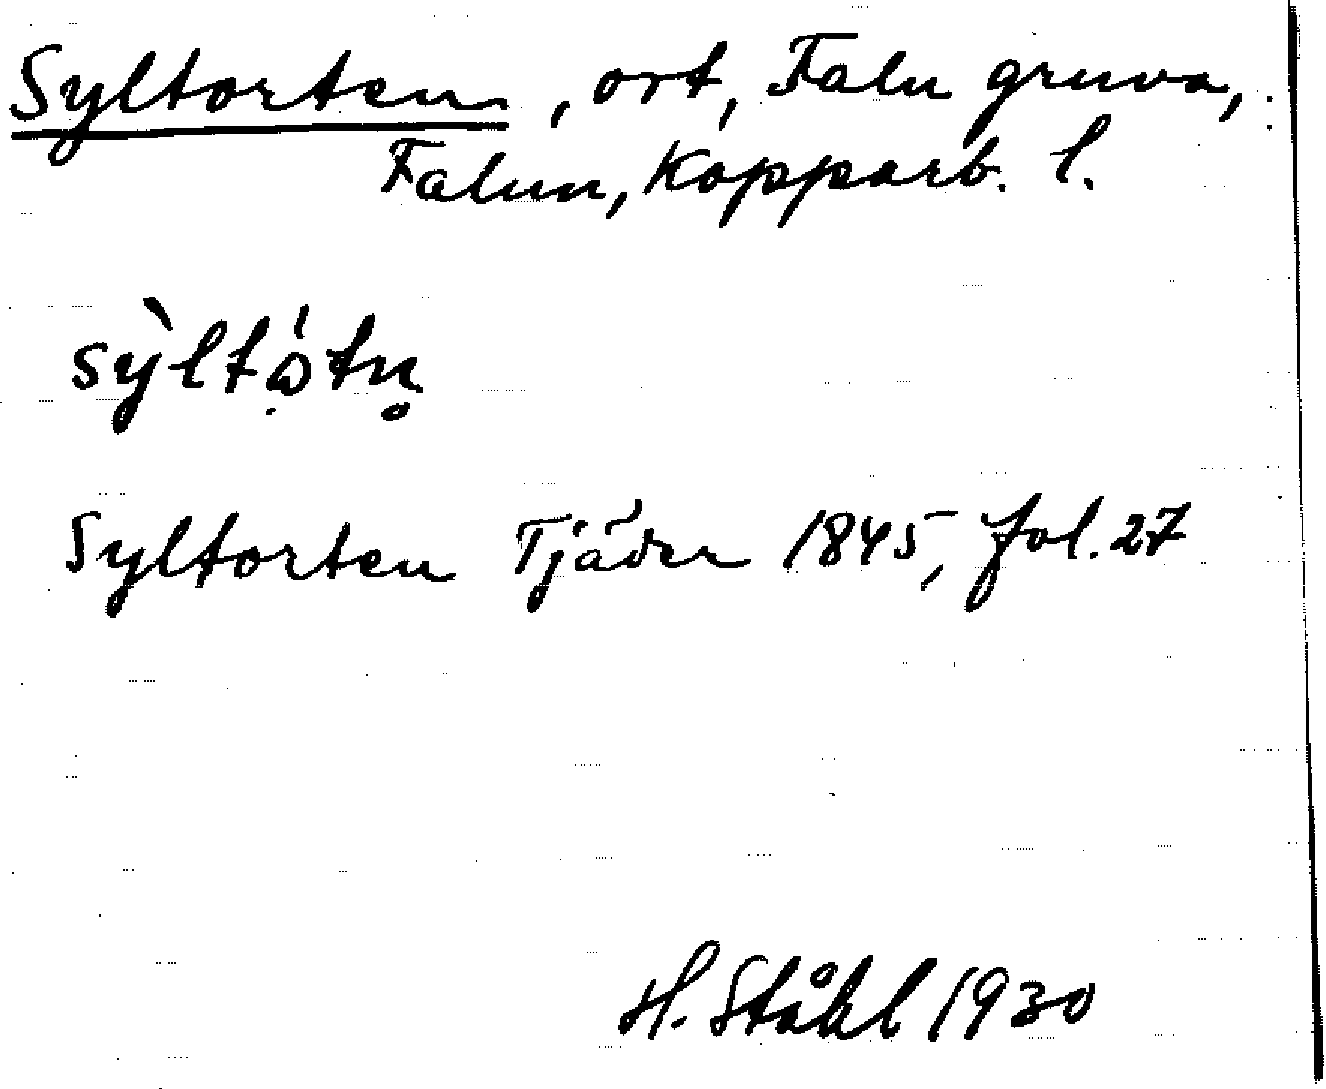 Syltorten, ort, Falu gruva,
Falun, Kopparb. l.
sỳltǫ́tn̥
Syltorten Tjäder 1845, fol. 27
H. Ståhl 1930